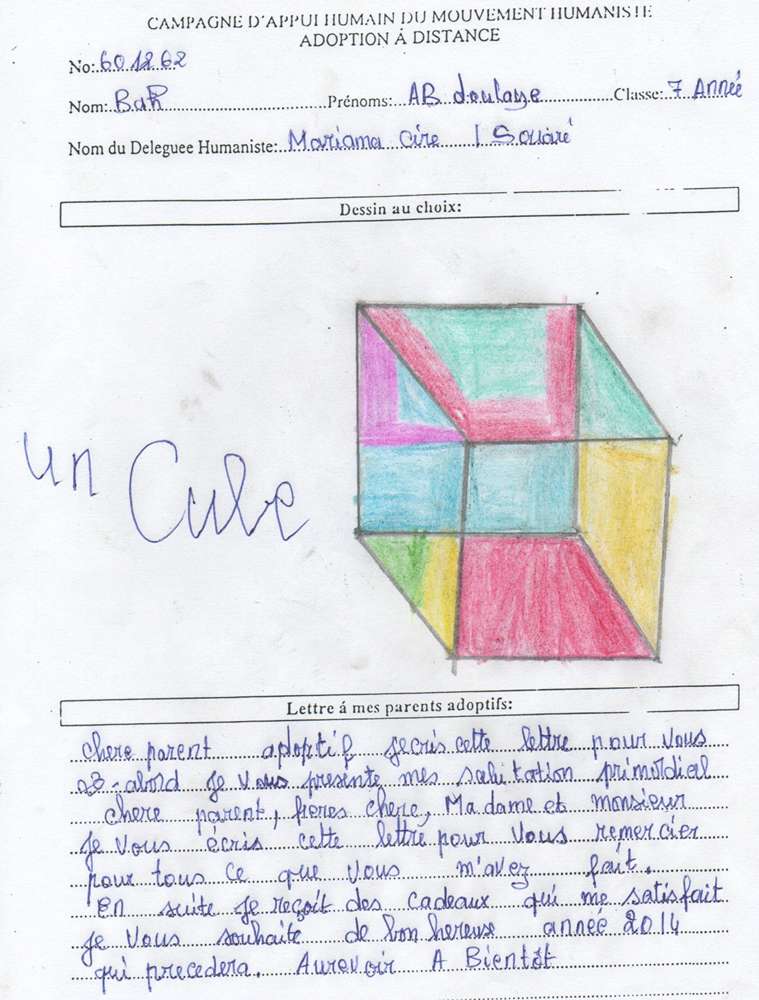 CAMPAGNE D'APPUI HUMAIN DU MOUVEMENT HUMANISTE
ADOPTION Á DISTANCE
No: 601262
Nom: Bah Prénoms: ABdoulaye Classe: 7 Année
Nom du Deleguee Humaniste: Mariama Cire | Souaré
Dessin au choix:
un Cube
Lettre á mes parents adoptifs:
chere parent adoptif jecris cette lettre pour vous
-abord je vous presente mes salutation primoldial
chere parent, freres chere, Madame et monsieur
je vous écris cette lettre pour vous remercier
pour tous ce que vous m'avez fait.
En suite je reçoit des cadeaux qui me satisfait
je vous souhaite de bon hereuse année 2014
qui precedera. Aurevoir A Bientôt